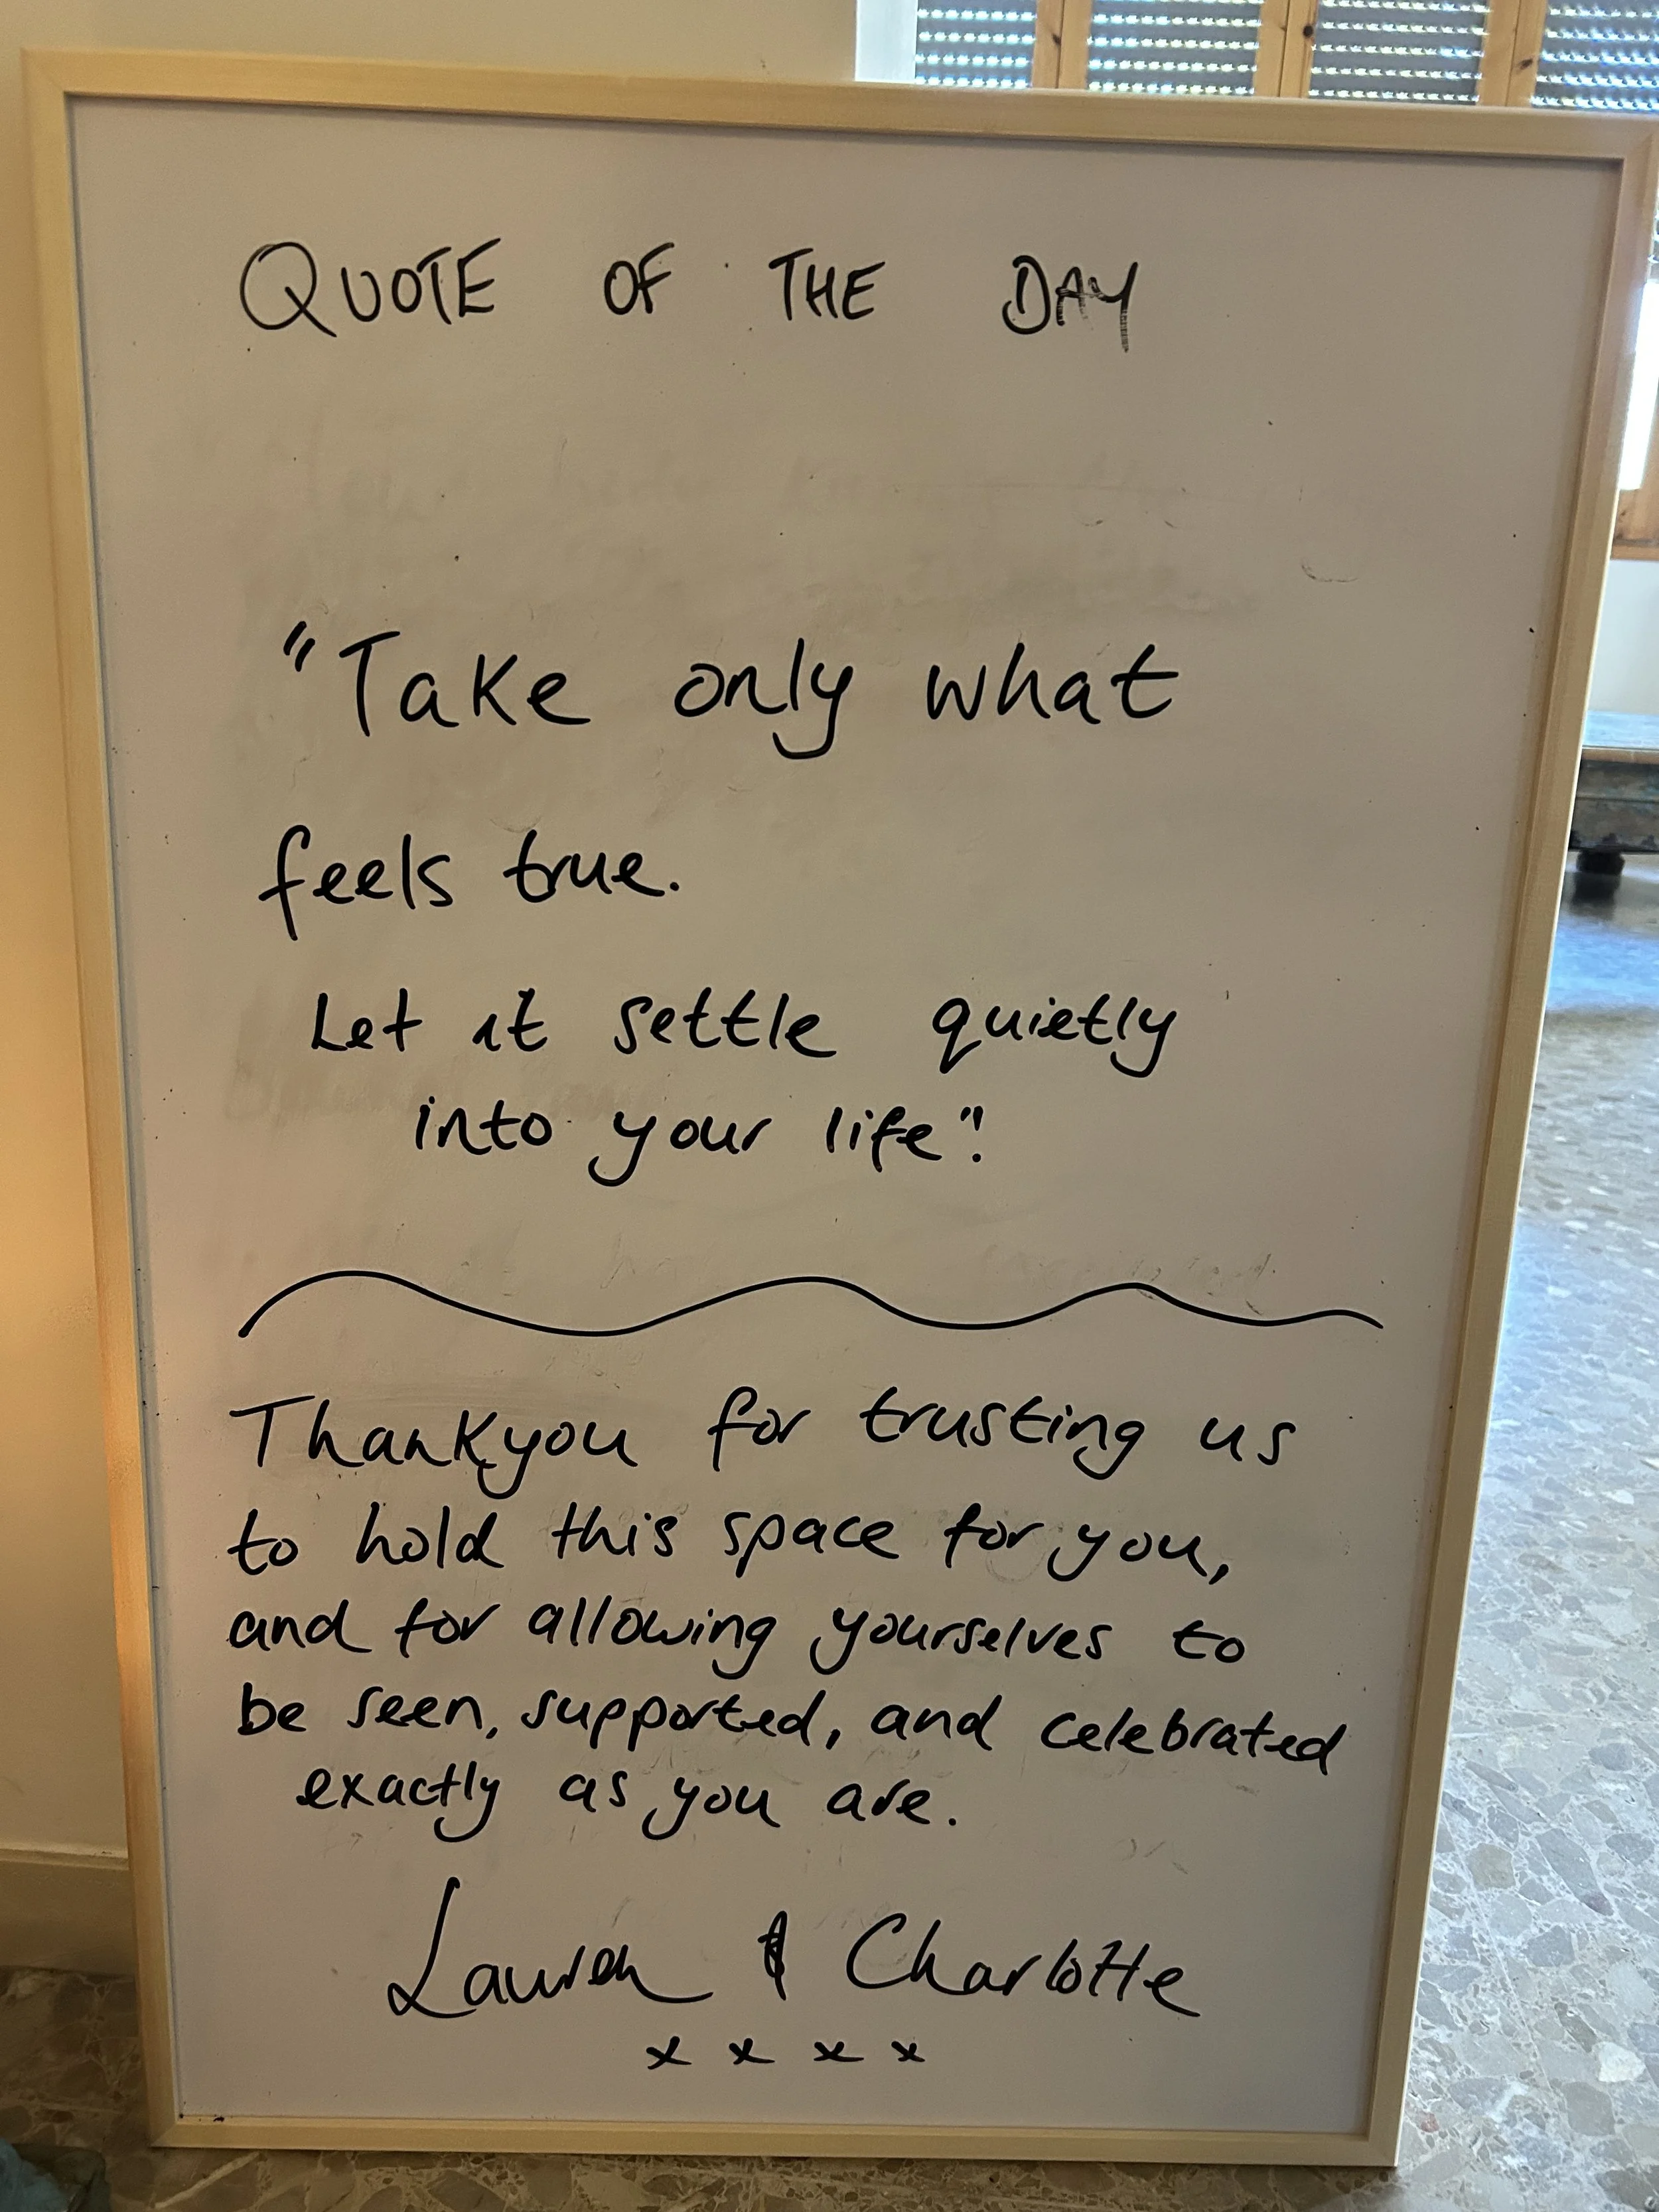 QUOTE OF THE DAY
"Take only what
feels true.
Let it settle quietly
into your life".
Thankyou for trusting us
to hold this space for you,
and for allowing yourselves to
be seen, supported, and celebrated
exactly as you are.
Lauren & Charlotte
x x x x